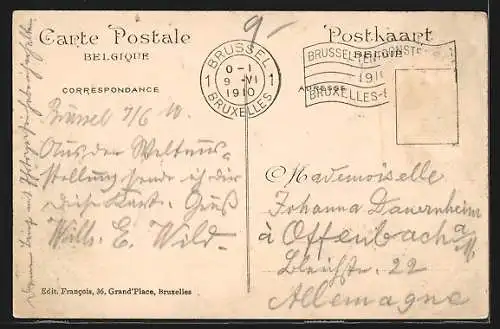 9-
Carte Postale
BELGIQUE
CORRESPONDANCE
Postkaart
BELGIE
ADRESSE
BRUSSEL
1 0-1 1
9 -VI
1910
BRUXELLES
BRUSSEL-TENTOONSTE
1910
BRUXELLES-
Brüssel 7/6 10.
Aus der Weltaus-
stellung sende ich dir
diese Karte. Gruß
Willi. E. Wild.
Mademoiselle
Johanna Dauernheim
à Offenbach a/M.
Bleichstr. 22
Allemagne
Edit. François, 36, Grand'Place, Bruxelles